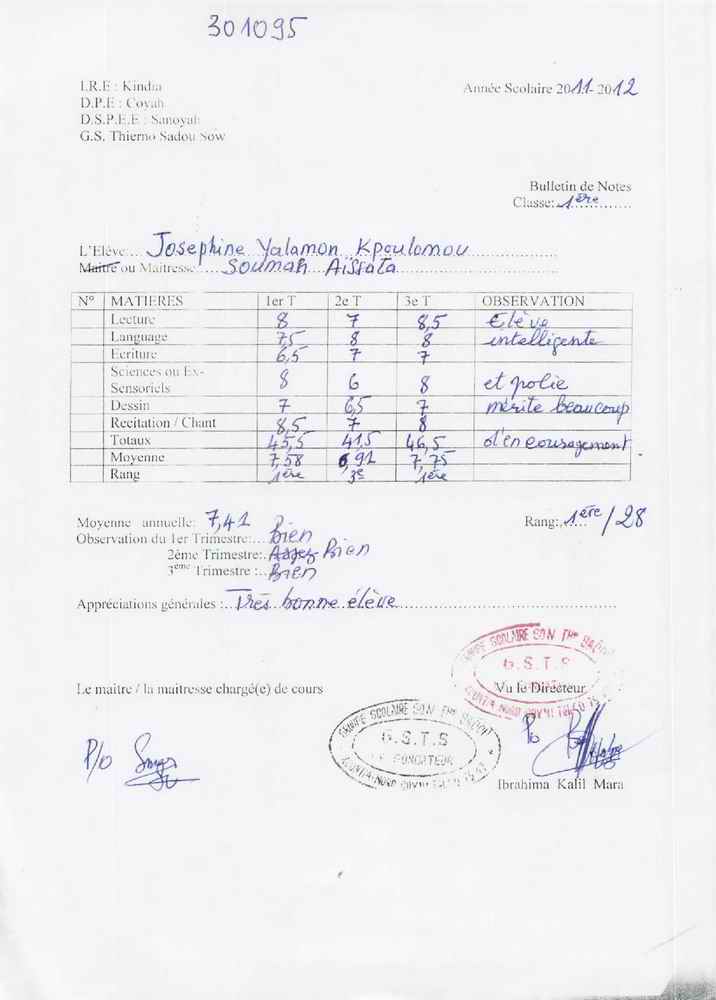 301095
I.R.E : Kindia
Année Scolaire 2011-2012
D.P.E : Coyah
D.S.P.E.E : Sanoyah
G.S. Thierno Sadou Sow
Bulletin de Notes
Classe: 1ère
L'Elève... Josephine Yalamon Kpoulomou
Maitre ou Maitresse... Soumah Aissata
N° MATIERES 1er T 2e T 3e T OBSERVATION
Lecture 8 7 8,5 Elève
Language 7,5 8 8 intelligente
Ecriture 6,5 7 7
Sciences ou Ex-
Sensoriels 8 6 8 et polie
Dessin 7 6,5 7 mérite beaucoup
Recitation / Chant 8,5 7 8
Totaux 45,5 41,5 46,5 d'encouragement
Moyenne 7,58 6,92 7,75
Rang 1ère 3e 1ère
Moyenne annuelle: 7,41
Rang: 1ère/28
Observation du 1er Trimestre:... Bien
2ème Trimestre:. Assez Bien
3ème Trimestre :.. Bien
Appréciations générales :.. Très bonne élève
G.S.T.S
Le maitre / la maitresse chargé(e) de cours
Vu le Directeur
GROUPE SCOLAIRE
G.S.T.S
LE FONDATEUR
P/o
P/o
Ibrahima Kalil Mara